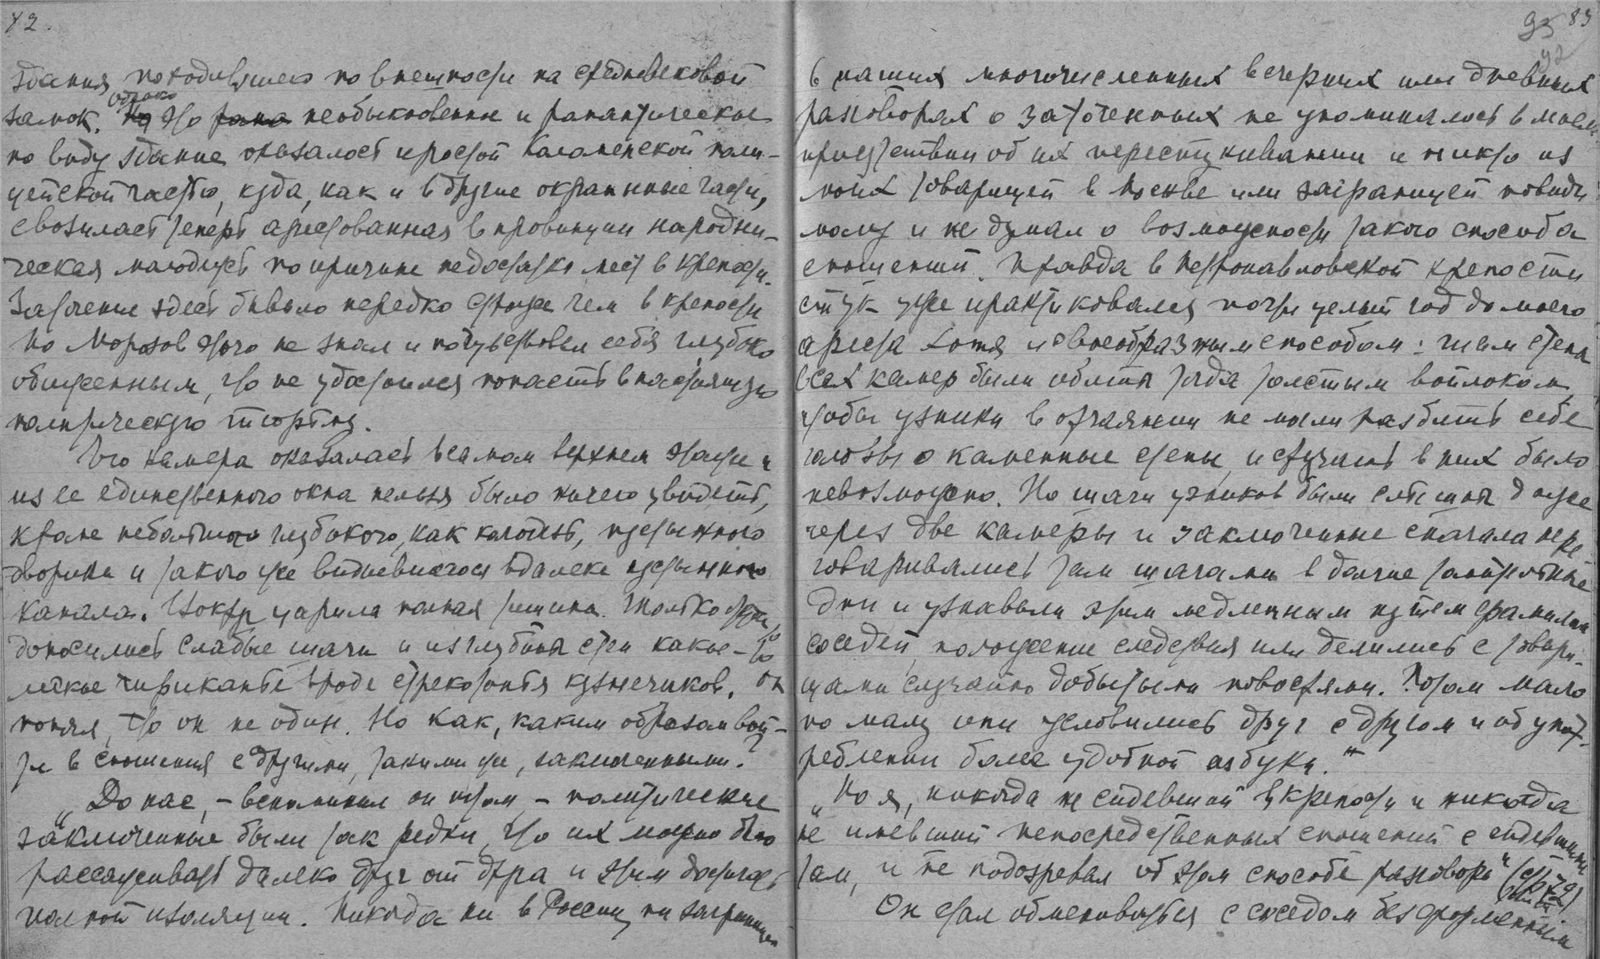 42.
здания походившего по внешности на средневековой
замок. Однако это необыкновенное и романтическое
по виду здание оказалось простой Коломенской поли-
цейской частью, куда, как и в другие окраинные части,
свозилась теперь арестованная в провинции народни-
ческая молодежь по причине недостатка мест в крепости.
Заточение здесь бывало нередко строже чем в крепости
Но Морозов этого не знал и почувствовал себя глубоко
обиженным, что не удостоился попасть в настоящую
политическую тюрьму.
Его камера оказалась в самом верхнем этаже и
из ее единственного окна нельзя было ничего увидеть,
кроме небольшого глубокого, как колодезь, пустынного
дворика и такого же видневшегося вдалеке пустынного
канала. Вокруг царила полная тишина. Только
доносились слабые шаги и из глубины стен какое-то
легкое чириканье вроде стрекотанья кузнечиков. Он
понял, что он не один. Но как, каким образом вой-
ти в сношения с другими, такими же, заключенными?
„До нас, – вспоминал он потом – политические
заключенные были так редки, что их можно было
рассаживать далеко друг от друга и этим достигать
полной изоляции. Никогда ни в России, ни заграницей
93 83
92
в наших многочисленных вечерних или дневных
разговорах о заточенных не упоминалось в моем
присутствии об их перестукивании и никто из
моих товарищей в Москве или заграницей повиди-
мому и не думал о возможности такого способа
сношений. Правда в Петропавловской крепости
стук уже практиковался почти целый год до моего
ареста хотя и своеобразным способом: там стены
всех камер были обиты тогда толстым войлоком,
чтобы узники в отчаянии не могли разбить себе
головы о каменные стены, и стучать в них было
невозможно. Но шаги узников были слышны даже
через две камеры и заключенные сначала пере
говаривались там шагами в долгие
дни и узнавали этим медленным путем фамилии
соседей, положение следствия или делились с товари-
щами случайно добытыми новостями. Потом мало
по малу они условились друг с другом и об упот-
реблении более удобной азбуки."
„Но я, никогда не сидевший в крепости и никогда
не имевший непосредственных сношений с сидевшими
там, и не подозревал об этом способе разговора"
Он стал обмениваться с соседом бесформенным